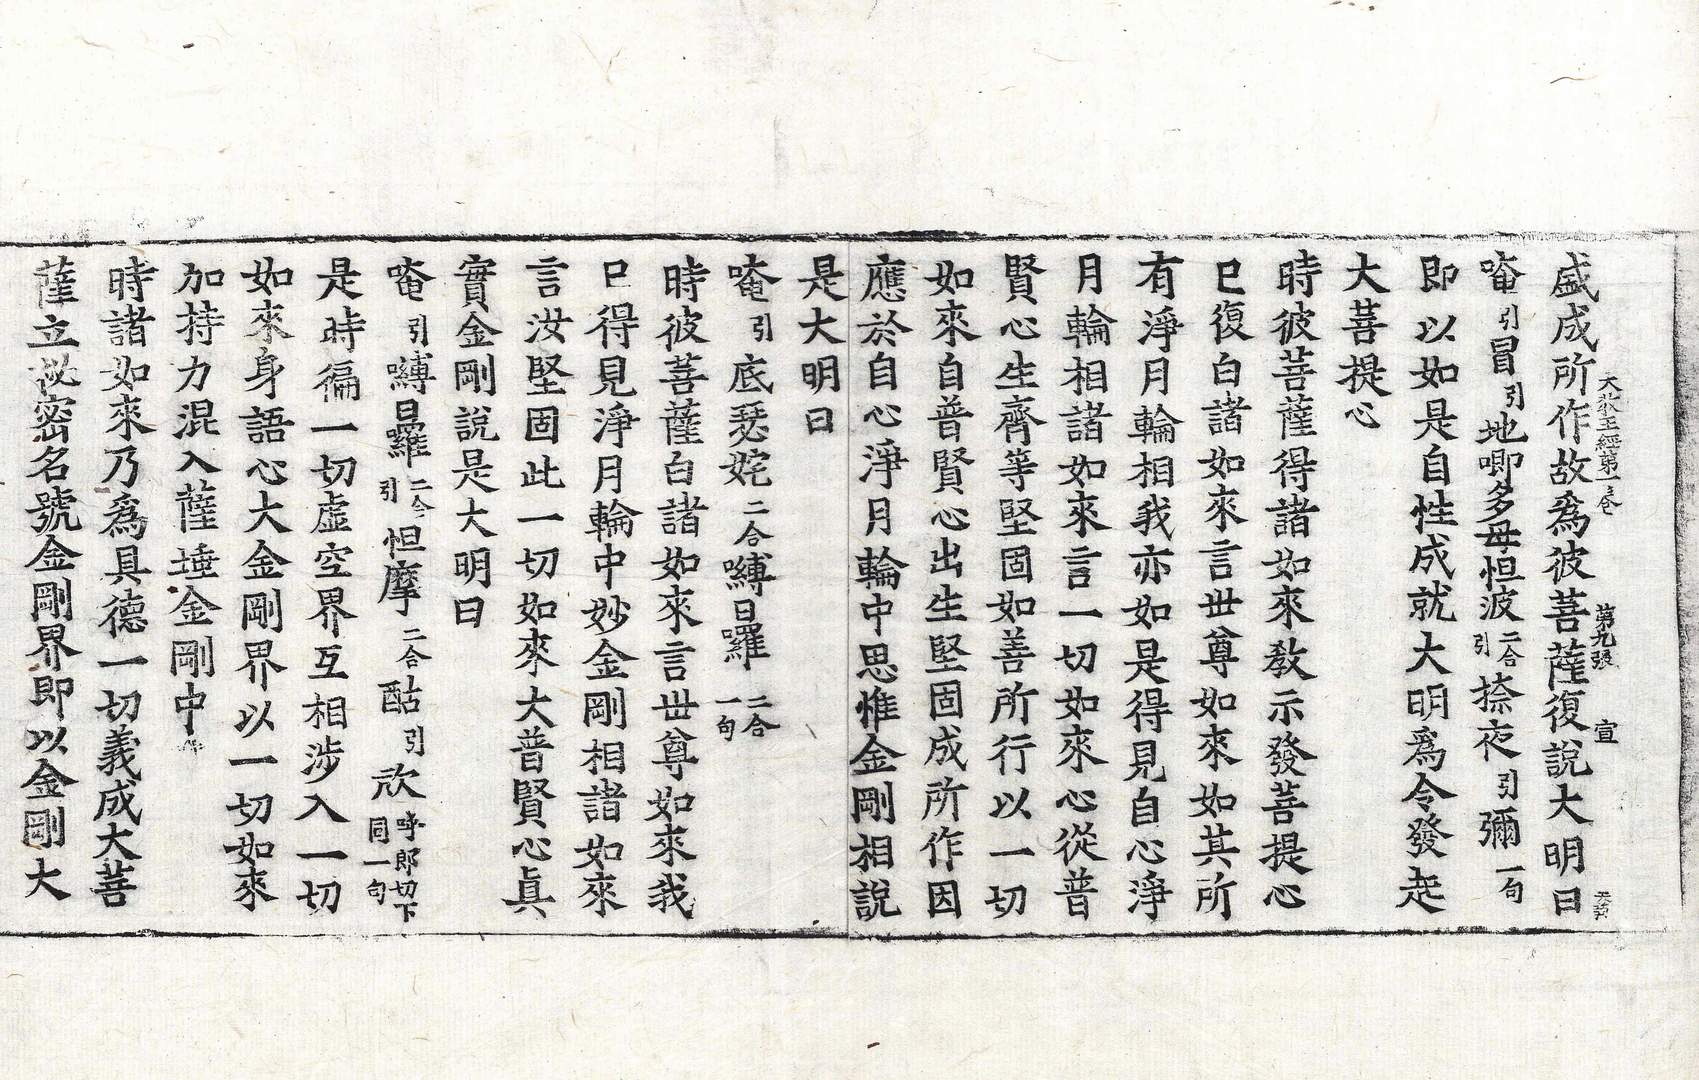 盛成所作故爲彼菩薩復說大明曰
大教王經第一卷 第九張 宣
唵引冒引地唧多母怛波二合引捺夜引彌一句
即以如是自性成就大明爲令發起
大菩提心
時彼菩薩得諸如來教示發菩提心
已復白諸如來言世尊如來如其所
有淨月輪相我亦如是得見自心淨
月輪相諸如來言一切如來心從普
賢心生齊等堅固如善所行以一切
如來自普賢心出生堅固成所作因
應於自心淨月輪中思惟金剛相說
是大明曰
唵引底瑟姹二合嚩日囉二合一句
時彼菩薩白諸如來言世尊如來我
已得見淨月輪中妙金剛相諸如來
言汝堅固此一切如來大普賢心真
實金剛說是大明曰
唵引嚩日囉二合引怛摩二合酤引欱呼郎切下同一句
是時徧一切虛空界互相涉入一切
如來身語心大金剛界以一切如來
加持力混入薩埵金剛中
時諸如來乃爲具德一切義成大菩
薩立祕密名號金剛界即以金剛大